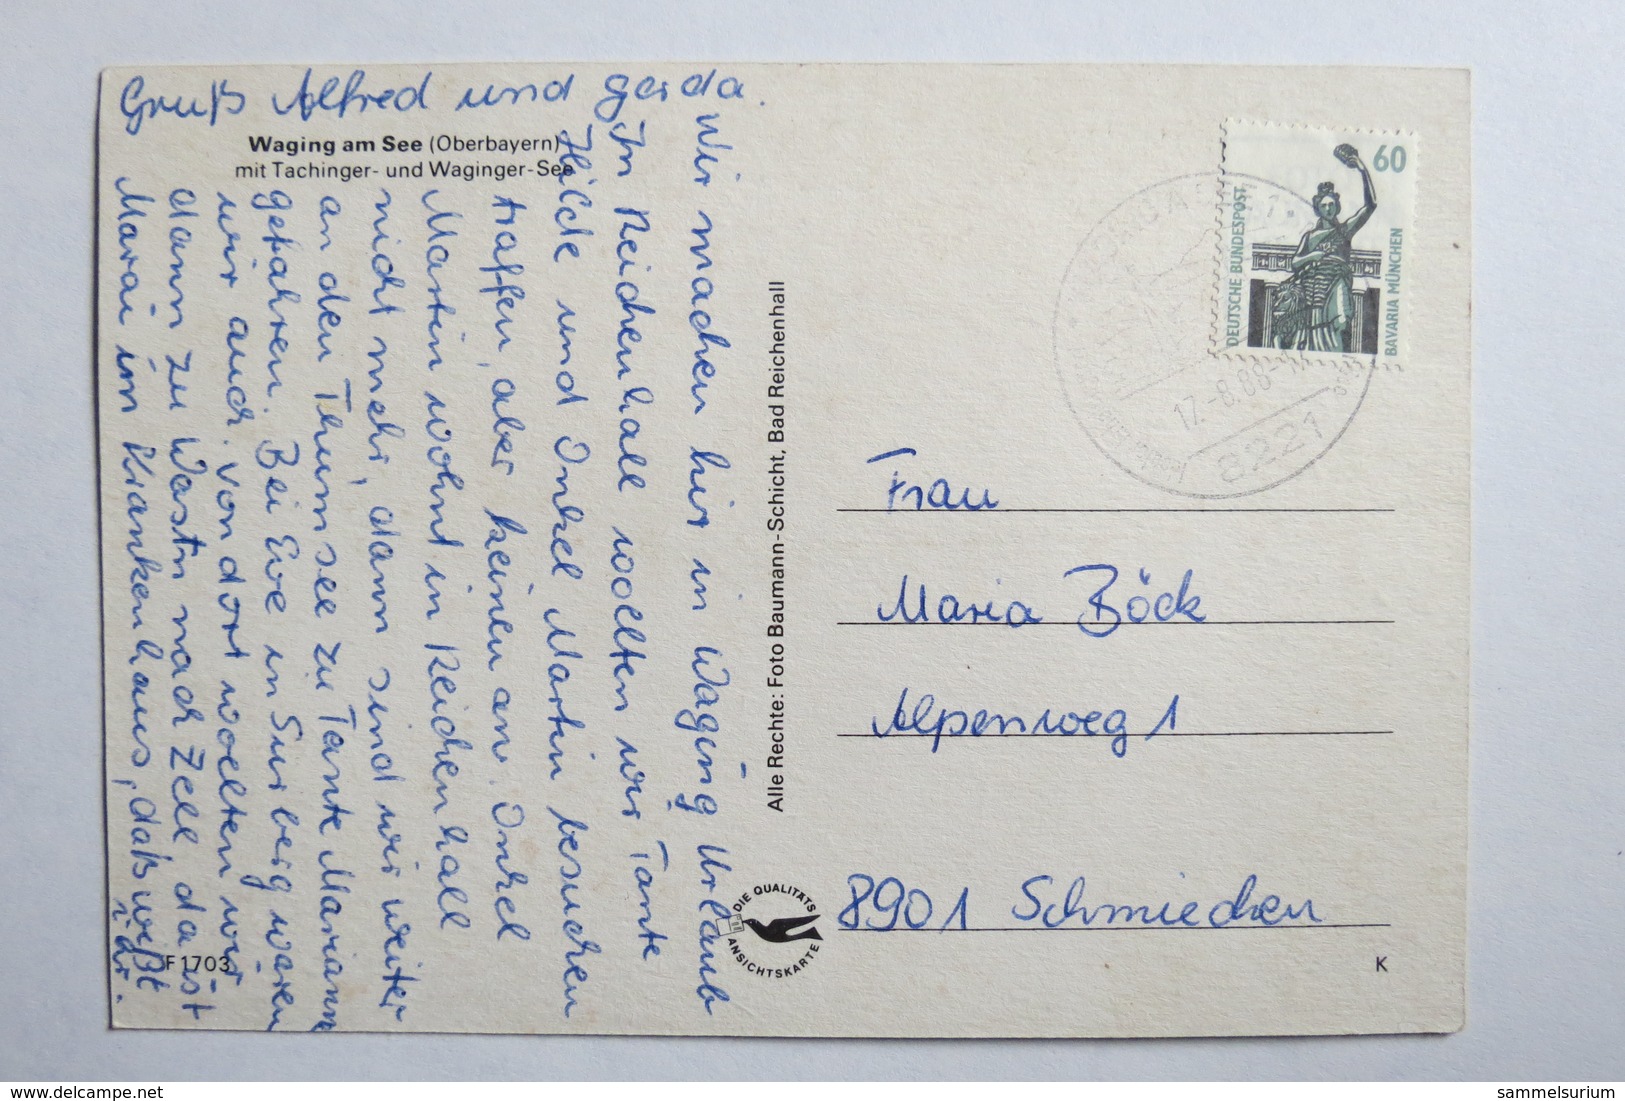 Gruß Alfred und Gerda.
Waging am See (Oberbayern)
mit Tachinger- und Waginger-See
Wir machen hir in Waging Urlaub
In Reichenhall woolten wir Tante
Hilde und Onkel Martin besuchen
traffen, aber keinen an. Onkel
Martin wohnt in Reichenhall
nicht mehr, dann sind wir weiter
an den Thumsee zu Tante Mariann
gefahren. Bei Eve in Surberg wären
wir auch. Von dort wolten wir
dann zu Wastn nach Zell da ist
Marai im Krankenhaus, daß wißt
ihr.
F 1703
Alle Rechte: Foto Baumann-Schicht, Bad Reichenhall
DIE QUALITÄTS
ANSICHTSKARTE
DEUTSCHE BUNDESPOST
60
BAVARIA MÜNCHEN
17.-8.88
8221
Frau
Maria Böck
Alpenweg 1
8901 Schmiechen
K
delcampe.net
sammelsurium